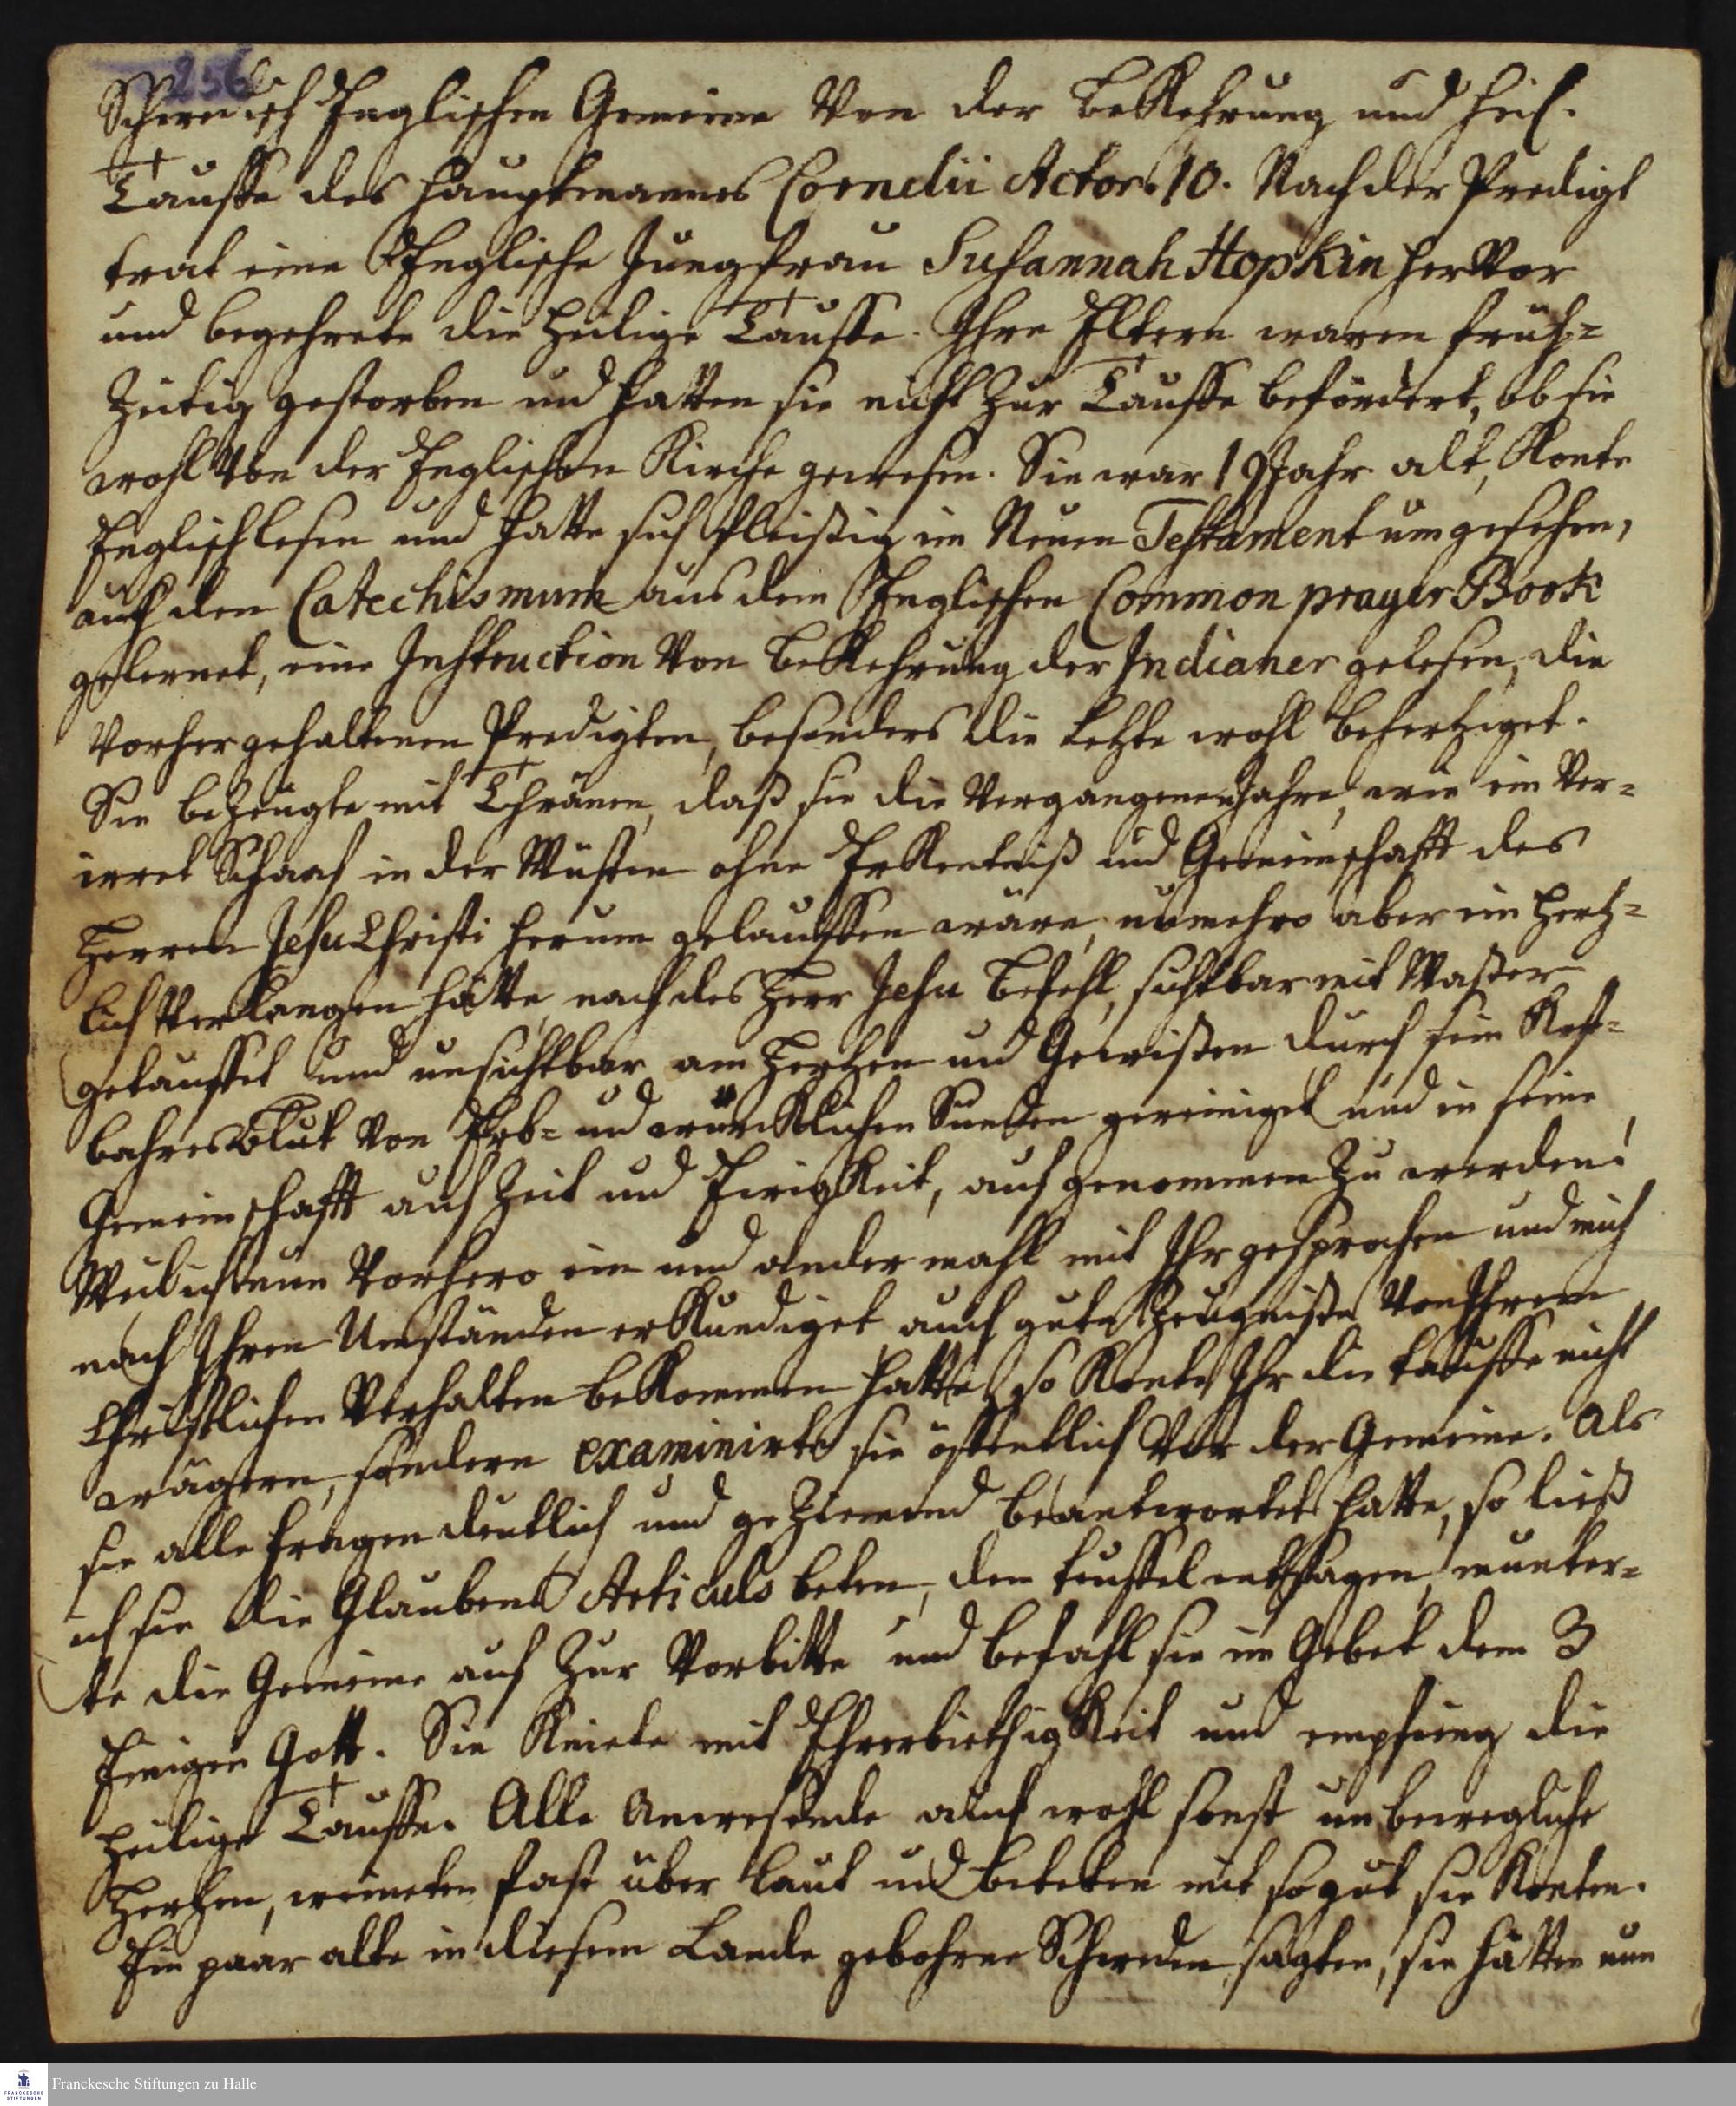 256
Schwedisch Englischen Gemeine Von der Bekehrung und heil.
Tauffe des Hauptmannes Cornelii Actor. 10. Nach der Predigt
trat eine Englische Jungfrau Susannah Hopkin herVor
und begehrete die heilige Tauffe. Ihre Eltern waren früh=
Zeitig gestorben und hatten sie nicht Zur Tauffe befördert, ob sie
wohl Von der Englischen Kirche gewesen. Sie war 19 Jahr alt, Konte
Englisch lesen und hatte sich fleißig im Neuen Testament umgesehen,
auch den Catechismum aus dem Englischen Common prayer Book
gelernet, eine Instruction Von Bekehrung der Indianer gelesen, die
Vorher gehaltenen Predigten, besonders die letzte wohl behertziget.
Sie beZeugte mit Thränen, daß sie die Vergangenen Jahre, wie ein Ver=
irret Schaaf in der Wüsten ohne Erkentniß und Gemeinschafft des
Herren Jesu Christi herum gelauffen wäre, nunmehro aber ein hertz=
lich Verlangen hätte, nach des Herr Jesu Befehl, sichtbar mit Waßer
getauffet und unsichtbar am Hertzen und Gewißen durch sein Kost=
bahres Blut Von Erb= und würcklichen Sünden gereiniget und in seine
Gemeinschafft auf Zeit und Ewigkeit, auf genommen Zu werden!
Weil ich nun Vorhero ein und ander mahl mit Ihr gesprochen und mich
nach Ihren Umständen erkundiget auch gute Zeugniße Von Ihrem
Christlichen Verhalten bekommen hatte, so Konte Ihr die tauffe nicht
wägern, sondern examinirte sie öffentlich Vor der Gemeine. Als
sie alle fragen deutlich und geZiemend beantwortet hatte, so ließ
ich sie die Glaubens Articuls beten, dem teuffel entsagen, munter=
te die Gemeine auf Zur Vorbitte und befahl sie im Gebet dem 3
Einigen Gott. Sie Kniete mit Ehrerbiethigkeit und empfieng die
heilige Tauffe. Alle Anwesende auch wohl sonst unbewegliche
Hertzen, weineten fast über laut und beteten mit so gut sie Konten.
Ein paar alte in diesem Lande gebohrne Schweden sagten, sie hätten nun
Franckesche Stiftungen zu Halle